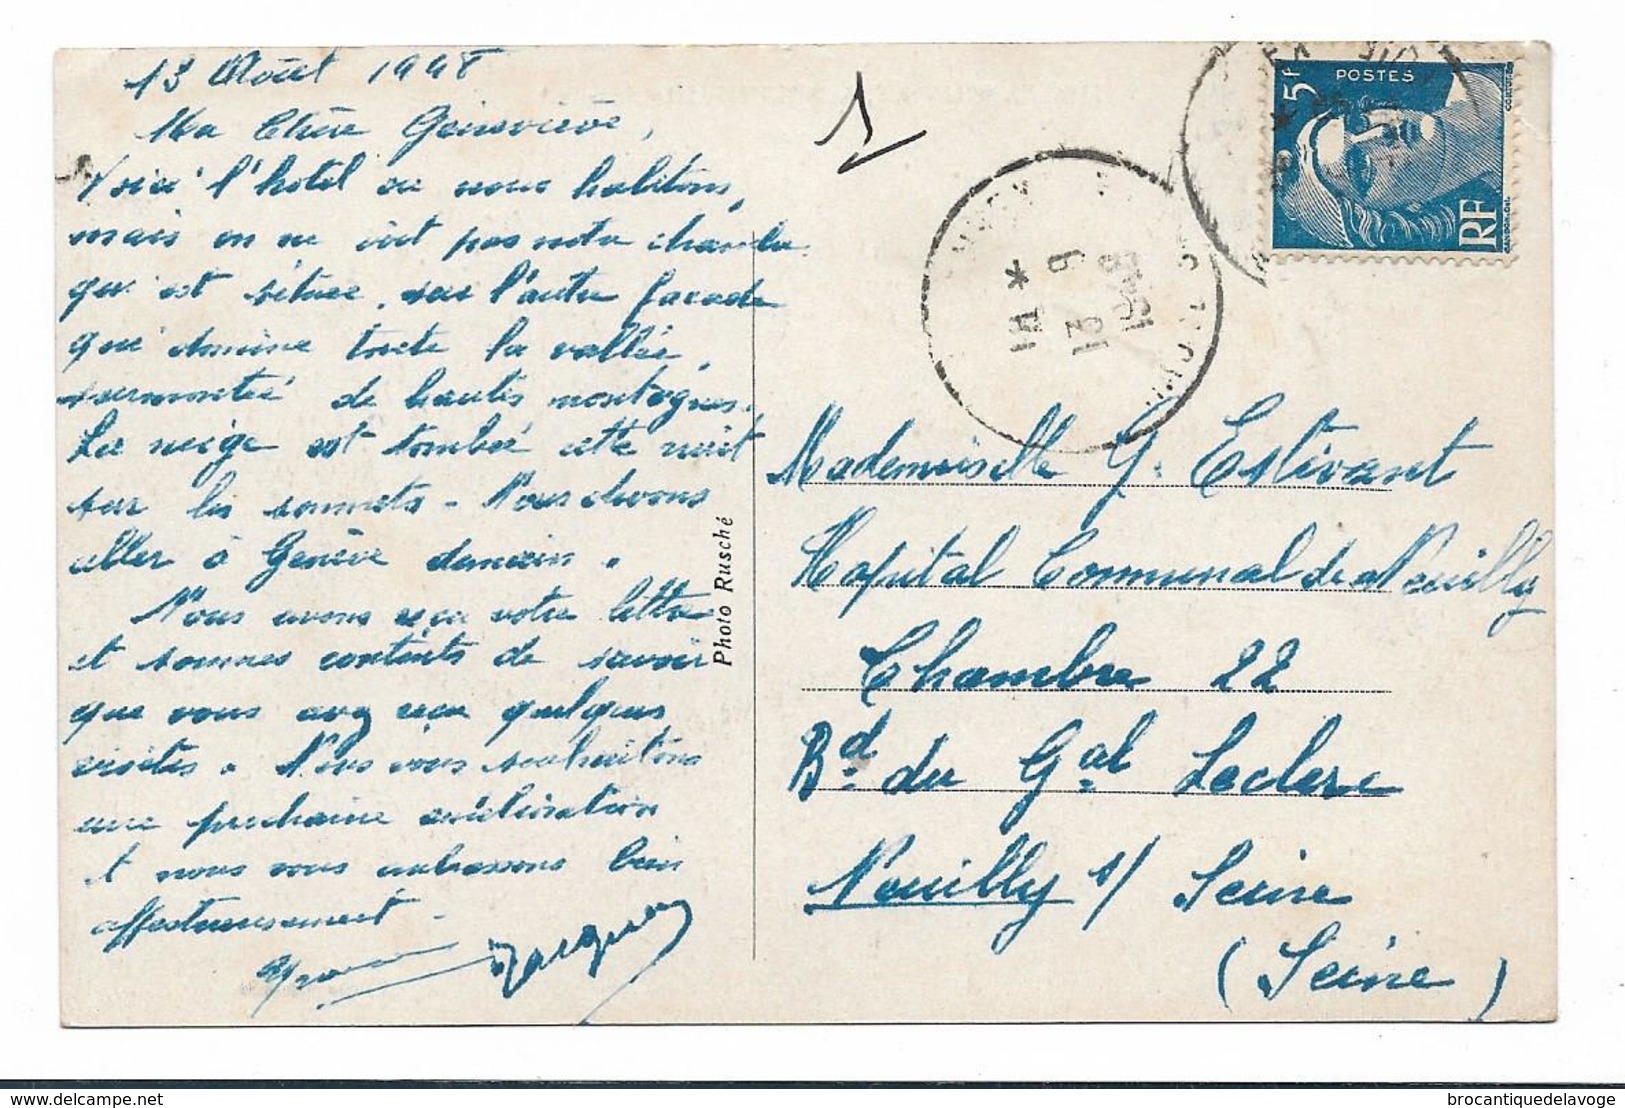 13 Août 1948
Ma Chère Geneviève,
Voici l'hotel où nous habitons,
mais on ne voit pas notre chambre
qui est située, sur l'autre façade
qui domine toute la vallée,
surmontée de hautes montagnes.
La neige est tombée cette nuit
sur les sommets - Nous devons
aller à Genève demain.
Nous avons reçu votre lettre
et sommes contents de savoir
que vous avez reçu quelques
visites. Nous vous souhaitons
une prochaine amélioration
et nous vous embrassons bien
affectueusement -
Jacques
Photo Rusché
POSTES
5F
RF
14 *
12 8
1948
Mademoiselle G. Estivant
Hopital Communal de Neuilly
Chambre 22
Bd. du Gal Leclerc
Neuilly s/ Seine
(Seine)
brocantiquedelavoge